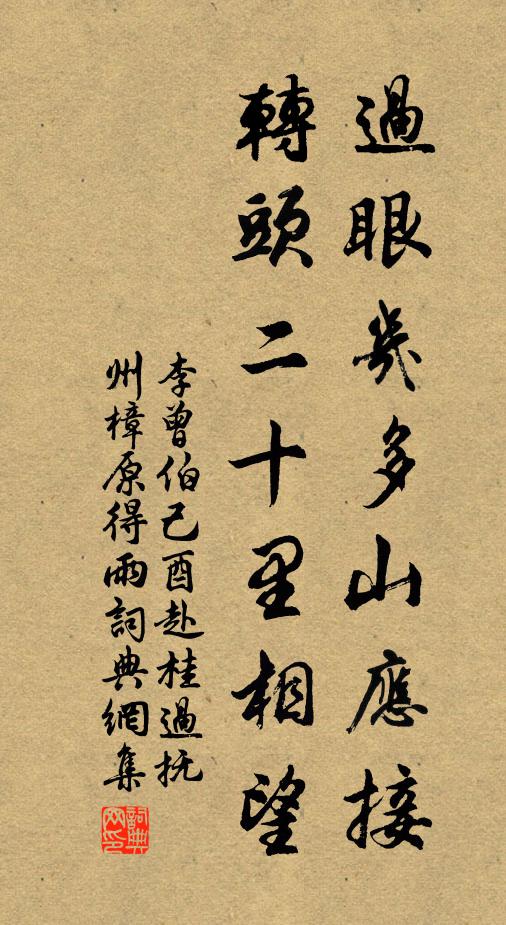 過眼幾多山應接
轉頭二十里相望
李曾伯己酉赴桂過抚
州樟原得雨詞典網集
詞典网印